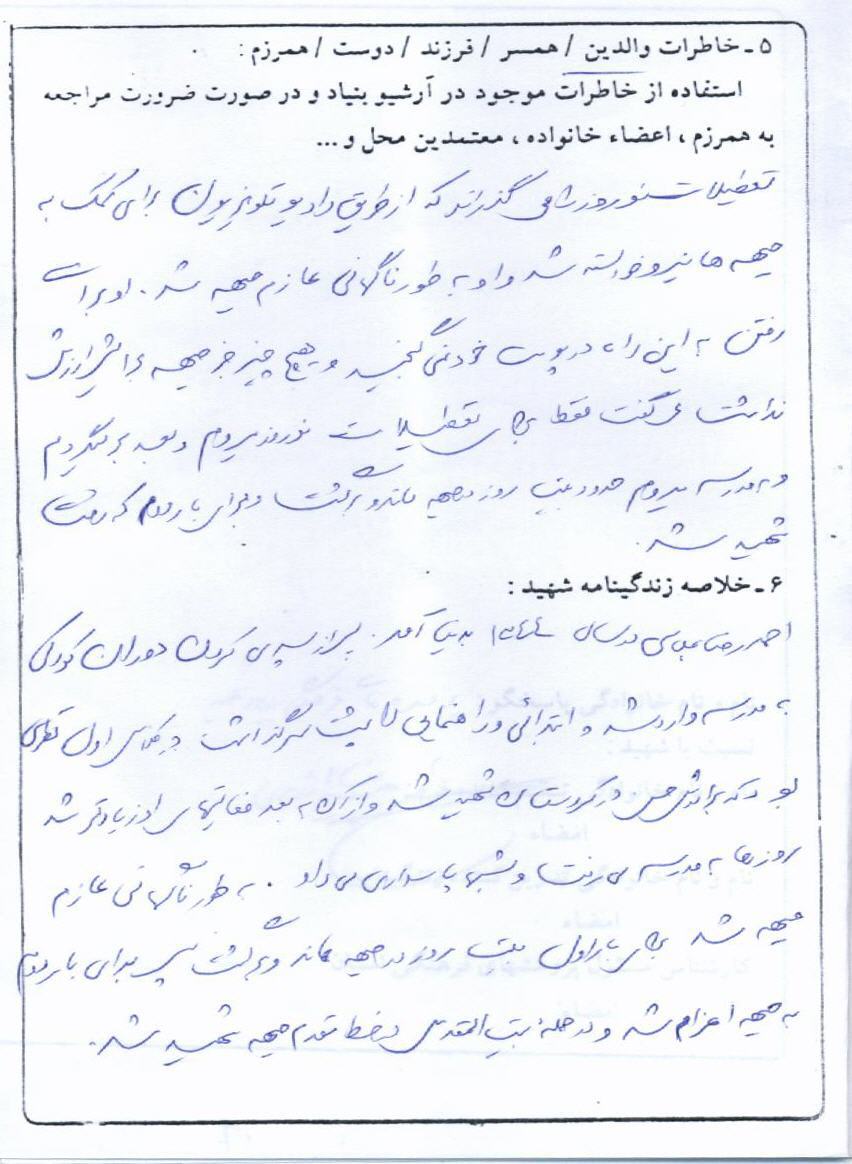 ۵ ـ خاطرات والدین / همسر / فرزند / دوست / همرزم :
استفاده از خاطرات موجود در آرشیو بنیاد و در صورت ضرورت مراجعه
به همرزم ، اعضاء خانواده ، معتمدین محل و ...
تعطیلات نوروز را می گذراند که از طریق رادیو تلویزیون برای کمک به
جبهه ها نیرو خواسته شد و او به طور ناگهانی عازم جبهه شد . او برای
رفتن به این راه در پوست خود نمی گنجید و هیچ چیز جز جبهه برایش ارزش
نداشت می گفت فقط برای تعطیلات نوروز میروم و بعد بر میگردم
و به مدرسه میروم حدود بیست روز در جبهه ماند و برگشت و برای بار دوم که رفت
شهید شد .
۶ ـ خلاصه زندگینامه شهید :
احمدرضا عباسی در سال ۱۳۴۴ بدنیا آمد . پس از سپری کردن دوران کودکی
به مدرسه وارد شد و ابتدائی و راهنمایی را پشت سر گذاشت در کلاس اول
بود که برادرش حسن در کردستان شهید شد و از آن به بعد فعالیتهای او زیادتر شد
روزها به مدرسه می رفت و شبها پاسداری می داد . به طور ناگهانی عازم
جبهه شد برای بار اول بیست روز در جبهه ماند و برگشت سپس برای بار دوم
به جبهه اعزام شد و در حمله بیت المقدس در خط مقدم جبهه شهید شد .